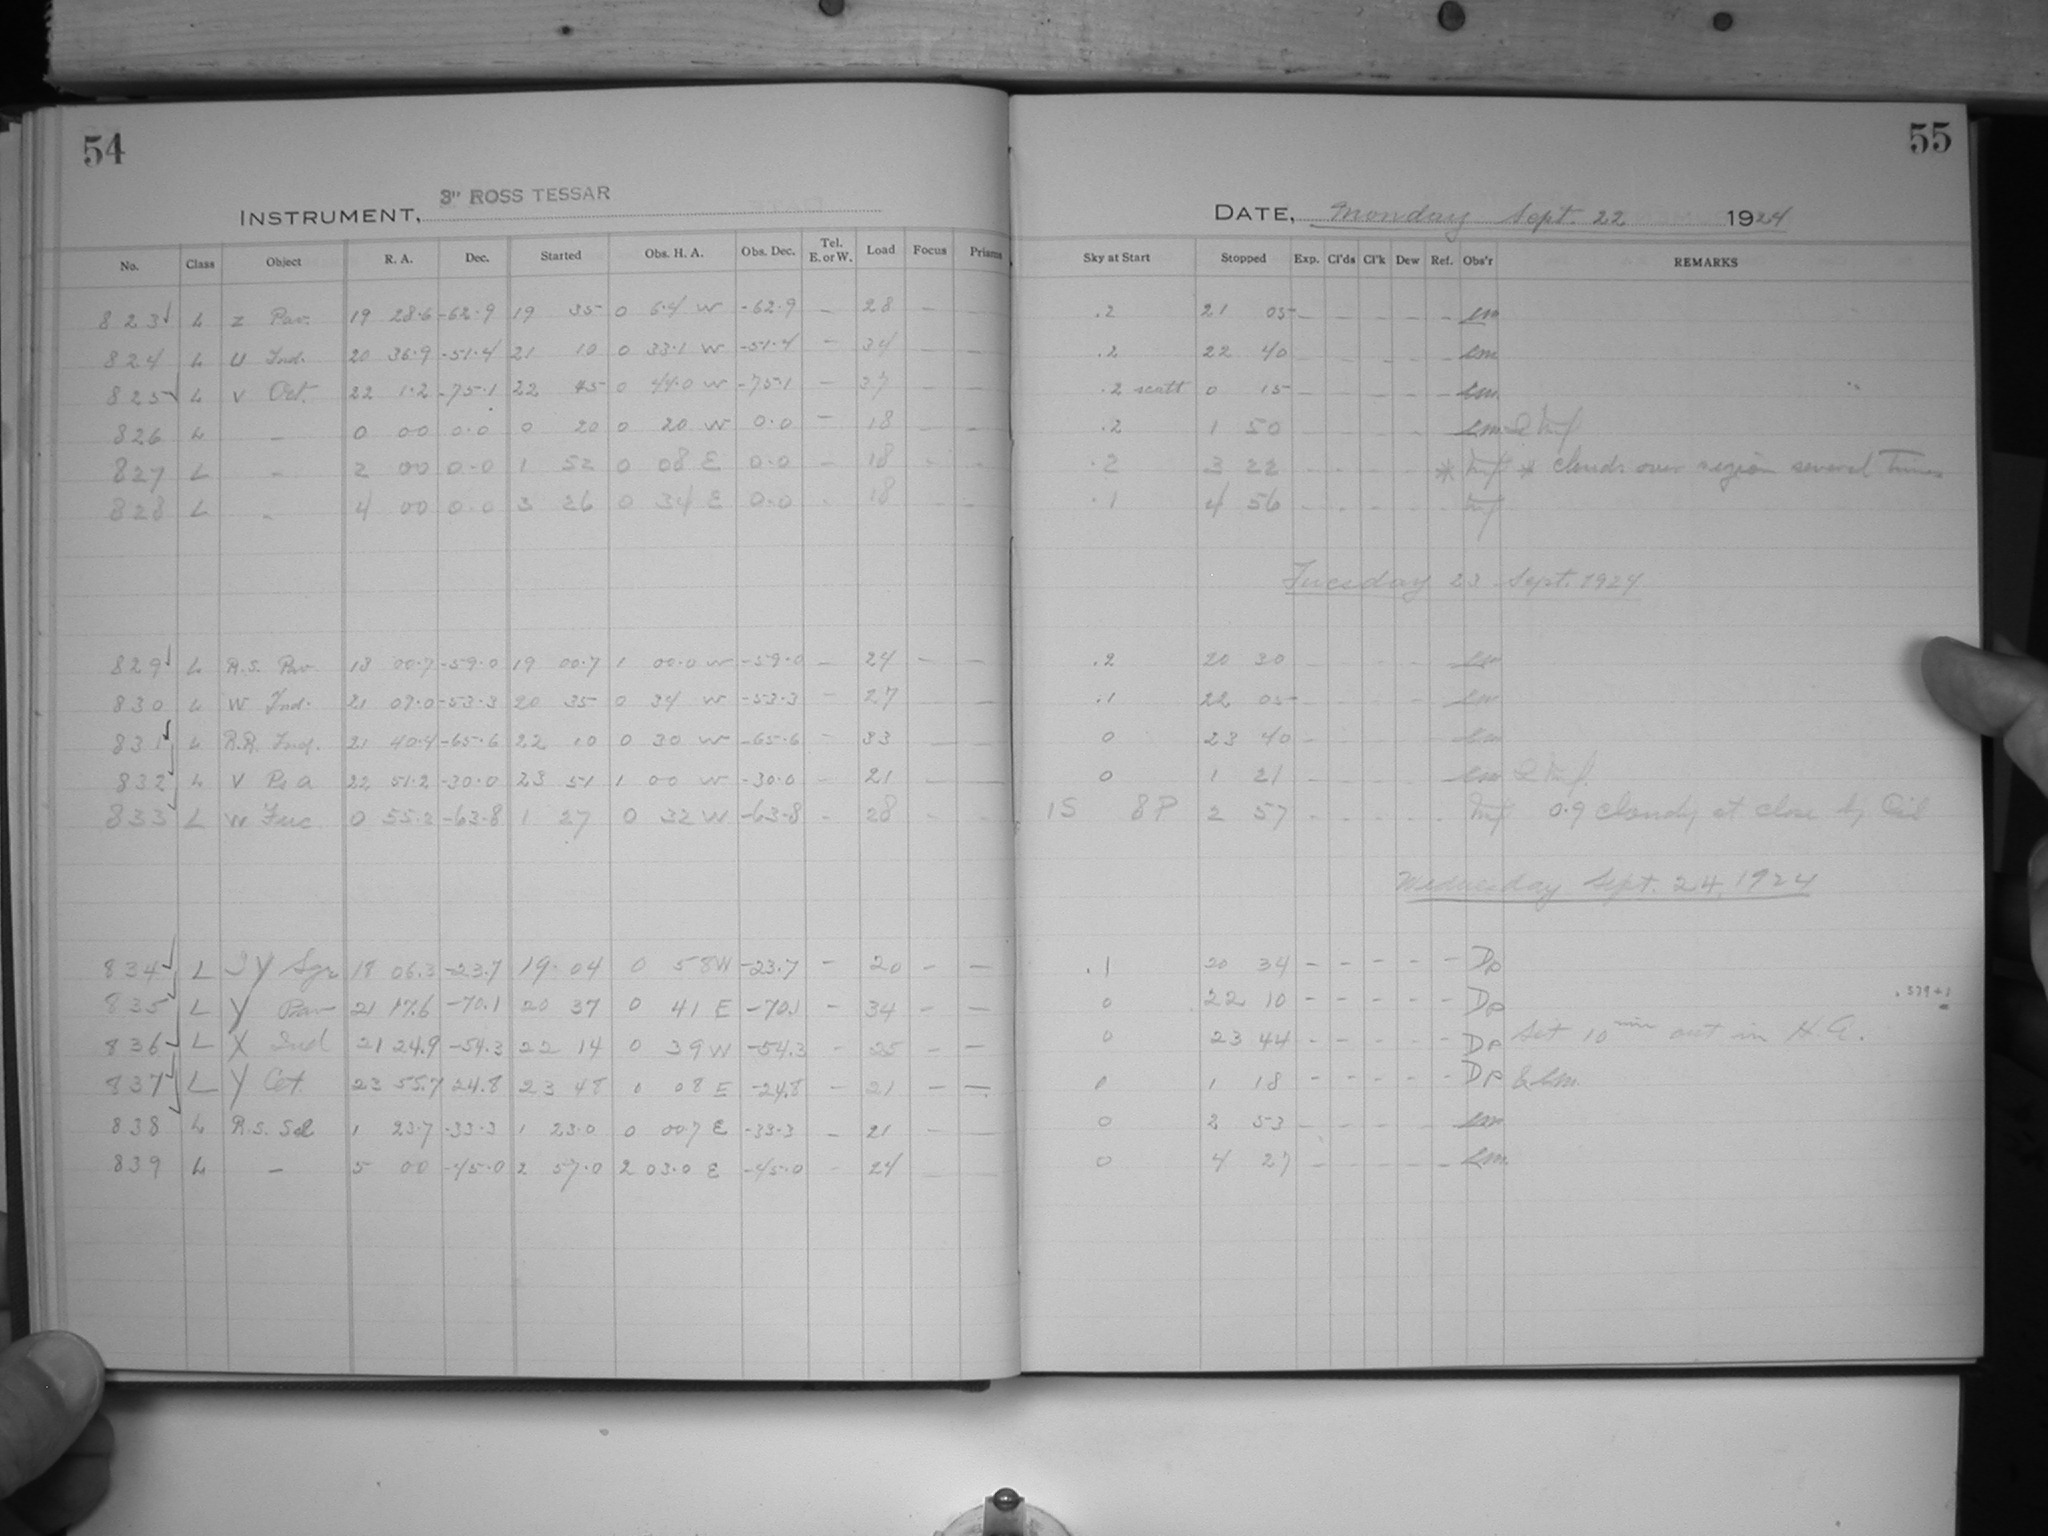 54
INSTRUMENT, 3" ROSS TESSAR
No. Class Object R. A. Dec. Started Obs. H. A. Obs. Dec. Tel. E. or W. Load Focus Prisms
823 L Z Pav. 19 28.6 -62.9 19 35 0 6.4 W -62.9 – 28 – –
824 L U Ind. 20 36.9 -51.4 21 10 0 33.1 W -51.4 – 34 – –
825 L V Oct. 22 1.2 -75.1 22 45 0 44.0 W -75.1 – 37 – –
826 L – 0 00 0.0 0 20 0 20 W 0.0 – 18 – –
827 L – 2 00 0.0 1 52 0 08 E 0.0 – 18 – –
828 L – 4 00 0.0 3 26 0 34 E 0.0 – 18 – –
829 L R.S. Pav. 18 00.7 -59.0 19 00.7 1 00.0 W -59.0 – 24 – –
830 L W Ind. 21 09.0 -53.3 20 35 0 34 W -53.3 – 27 – –
831 L R.R. Ind. 21 40.4 -65.6 22 10 0 30 W -65.6 – 33 – –
832 L V Ps A 22 51.2 -30.0 23 51 1 00 W -30.0 – 21 – –
833 L W Tuc 0 55.2 -63.8 1 27 0 32 W -63.8 – 28 – –
834 L Y Sgr 18 06.3 -23.7 19.04 0 58 W -23.7 – 20 – –
835 L Y Pav 21 17.6 -70.1 20 37 0 41 E -70.1 – 34 – –
836 L X Ind 21 24.9 -54.3 22 14 0 39 W -54.3 – 25 – –
837 L Y Cet. 23 55.7 24.8 23 48 0 08 E -24.8 – 21 – –
838 L R.S. Scl 1 23.7 -33.3 1 23.0 0 00.7 E -33.3 – 21 – –
839 L – 5 00 -45.0 2 57.0 2 03.0 E -45.0 – 24 – –
55
DATE, Monday Sept. 22 1924
Sky at Start Stopped Exp. Cl'ds Cl'k Dew Ref. Obs'r REMARKS
.2 21 05 – – – – – Em
.2 22 40 – – – – – Em
.2 scatt 0 15 – – – – – Em
.2 1 50 – – – – – Em &
.2 3 22 – – – – * * clouds over region several times
.1 4 56 – – – – –
Tuesday 23 Sept. 1924
.2 20 30 – – – – – Em
.1 22 05 – – – – – Em
0 23 40 – – – – – Em
0 1 21 – – – – – Em &
1S 8P 2 57 – – – – – 0.9 cloudy at close by
Wednesday Sept. 24, 1924
.1 20 34 – – – – – Dp
0 22 10 – – – – – Dp
0 23 44 – – – – – Dp Set 10 min out in H.A.
0 1 18 – – – – – Dp & Em.
0 2 53 – – – – – Em
0 4 27 – – – – – Em